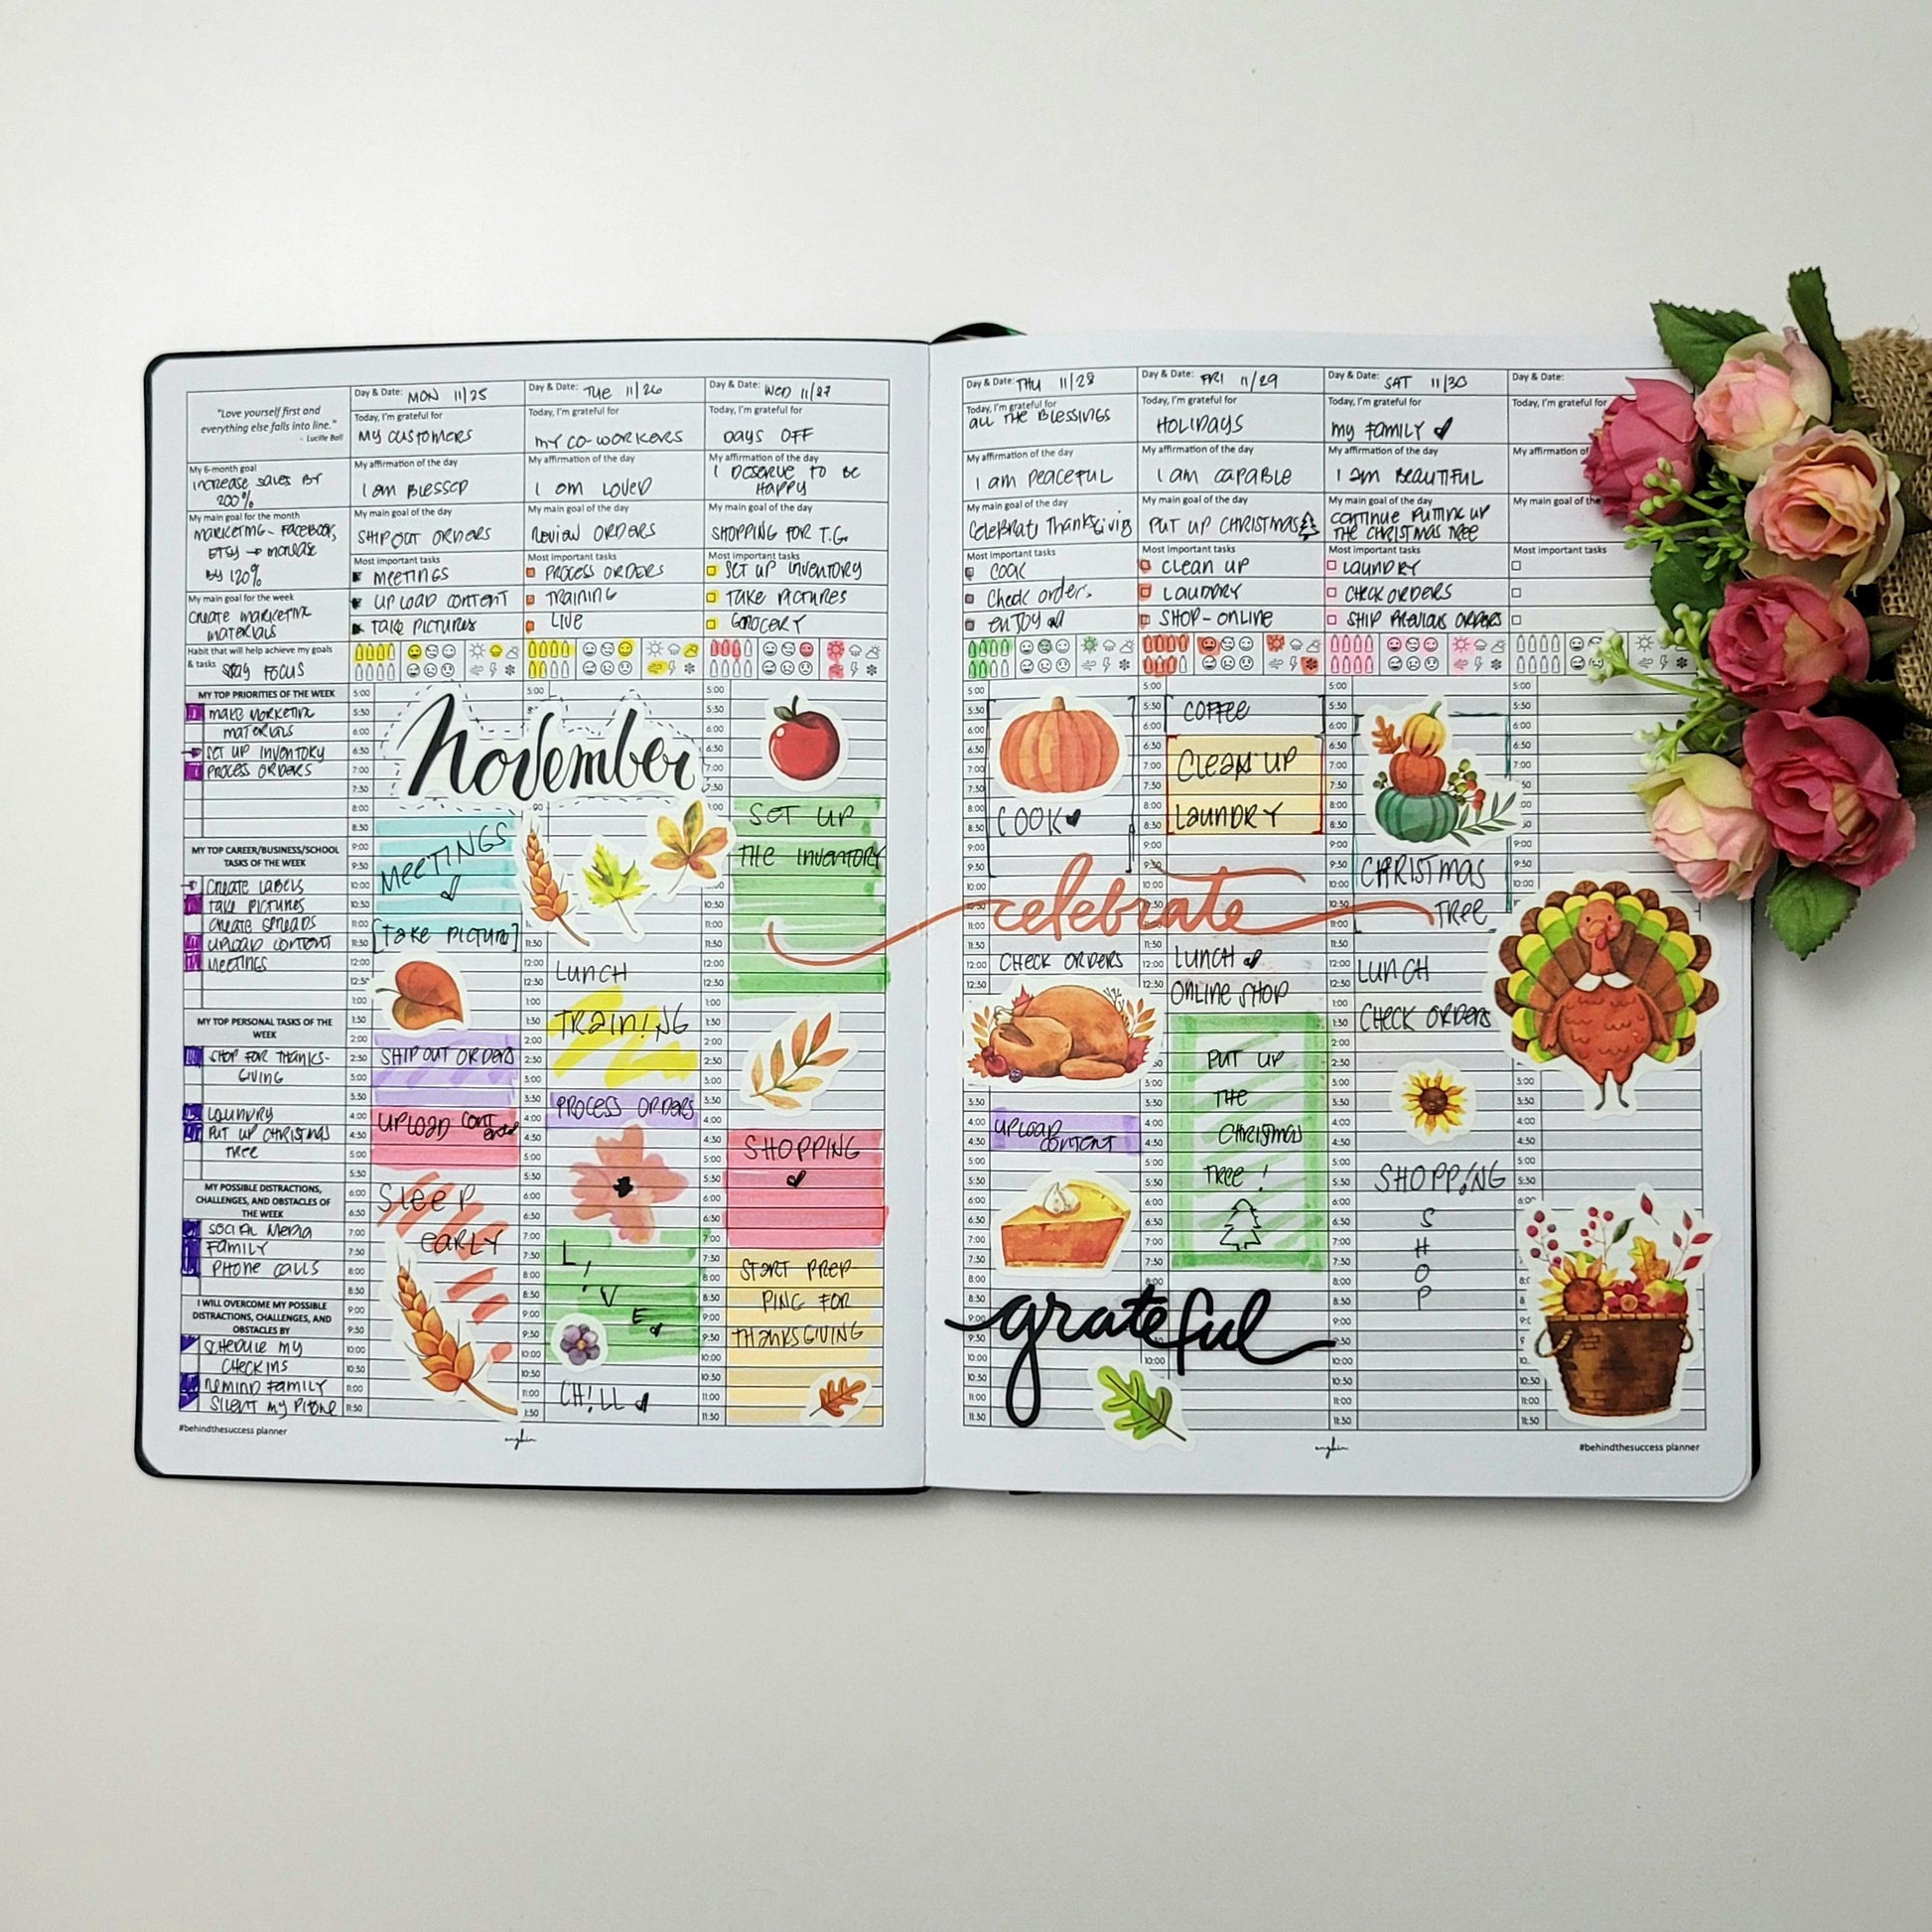 "Love yourself first and
everything else falls into line."
- Lucille Ball
My 6-month goal
INCREASE SALES BY
200%
My main goal for the month
MARKETING - FACEBOOK,
ETSY → INCREASE
BY 120%
My main goal for the week
CREATE MARKETING
MATERIALS
Habit that will help achieve my goals
& tasks STAY FOCUS
MY TOP PRIORITIES OF THE WEEK
MAKE MARKETING
MATERIALS
SET UP INVENTORY
PROCESS ORDERS
MY TOP CAREER/BUSINESS/SCHOOL
TASKS OF THE WEEK
CREATE LABELS
TAKE PICTURES
CREATE SPREADS
UPLOAD CONTENT
MEETINGS
MY TOP PERSONAL TASKS OF THE
WEEK
SHOP FOR THANKS-
GIVING
LAUNDRY
PUT UP CHRISTMAS
TREE
MY POSSIBLE DISTRACTIONS,
CHALLENGES, AND OBSTACLES OF
THE WEEK
SOCIAL MEDIA
FAMILY
PHONE CALLS
I WILL OVERCOME MY POSSIBLE
DISTRACTIONS, CHALLENGES, AND
OBSTACLES BY
SCHEDULE MY
CHECK INS
REMIND FAMILY
SILENT MY PHONE
#behindthesuccess planner
Day & Date: MON 11/25
Today, I'm grateful for
MY CUSTOMERS
My affirmation of the day
I am BLESSED
My main goal of the day
SHIP OUT ORDERS
Most important tasks
MEETINGS
UPLOAD CONTENT
TAKE PICTURES
November
MEETINGS
[TAKE PICTURE]
SHIP OUT ORDERS
UPLOAD CONTENT
SLEEP
EARLY
Day & Date: TUE 11/26
Today, I'm grateful for
MY CO-WORKERS
My affirmation of the day
I am LOVED
My main goal of the day
REVIEW ORDERS
Most important tasks
PROCESS ORDERS
TRAINING
LIVE
LUNCH
TRAIN!NG
PROCESS ORDERS
L
!
V
E
CH!LL
Day & Date: WED 11/27
Today, I'm grateful for
DAYS OFF
My affirmation of the day
I DESERVE TO BE
HAPPY
My main goal of the day
SHOPPING FOR T.G.
Most important tasks
SET UP INVENTORY
TAKE PICTURES
GROCERY
SET UP
THE INVENTORY
SHOPPING
START PREP-
PING FOR
THANKSGIVING
Day & Date: THU 11/28
Today, I'm grateful for
all THE BLESSINGS
My affirmation of the day
I am PEACEFUL
My main goal of the day
Celebrate Thanksgiving
Most important tasks
COOK
Check orders
ENJOY
COOK
celebrate
CHECK ORDERS
UPLOAD
CONTENT
grateful
Day & Date: FRI 11/29
Today, I'm grateful for
HOLIDAYS
My affirmation of the day
I am CAPABLE
My main goal of the day
PUT UP CHRISTMAS
Most important tasks
CLEAN UP
LAUNDRY
SHOP-ONLINE
COFFEE
CLEAN UP
LAUNDRY
LUNCH
ONLINE SHOP
PUT UP
THE
CHRISTMAS
TREE!
Day & Date: SAT 11/30
Today, I'm grateful for
MY FAMILY
My affirmation of the day
I am BEAUTIFUL
My main goal of the day
CONTINUE PUTTING UP
THE CHRISTMAS TREE
Most important tasks
LAUNDRY
CHECK ORDERS
SHIP PREVIOUS ORDERS
CHRISTMAS
TREE
LUNCH
CHECK ORDERS
SHOPP!NG
S
H
O
P
Day & Date:
Today, I'm grateful for
My affirmation of
My main goal of the
Most important tasks
#behindthesuccess planner